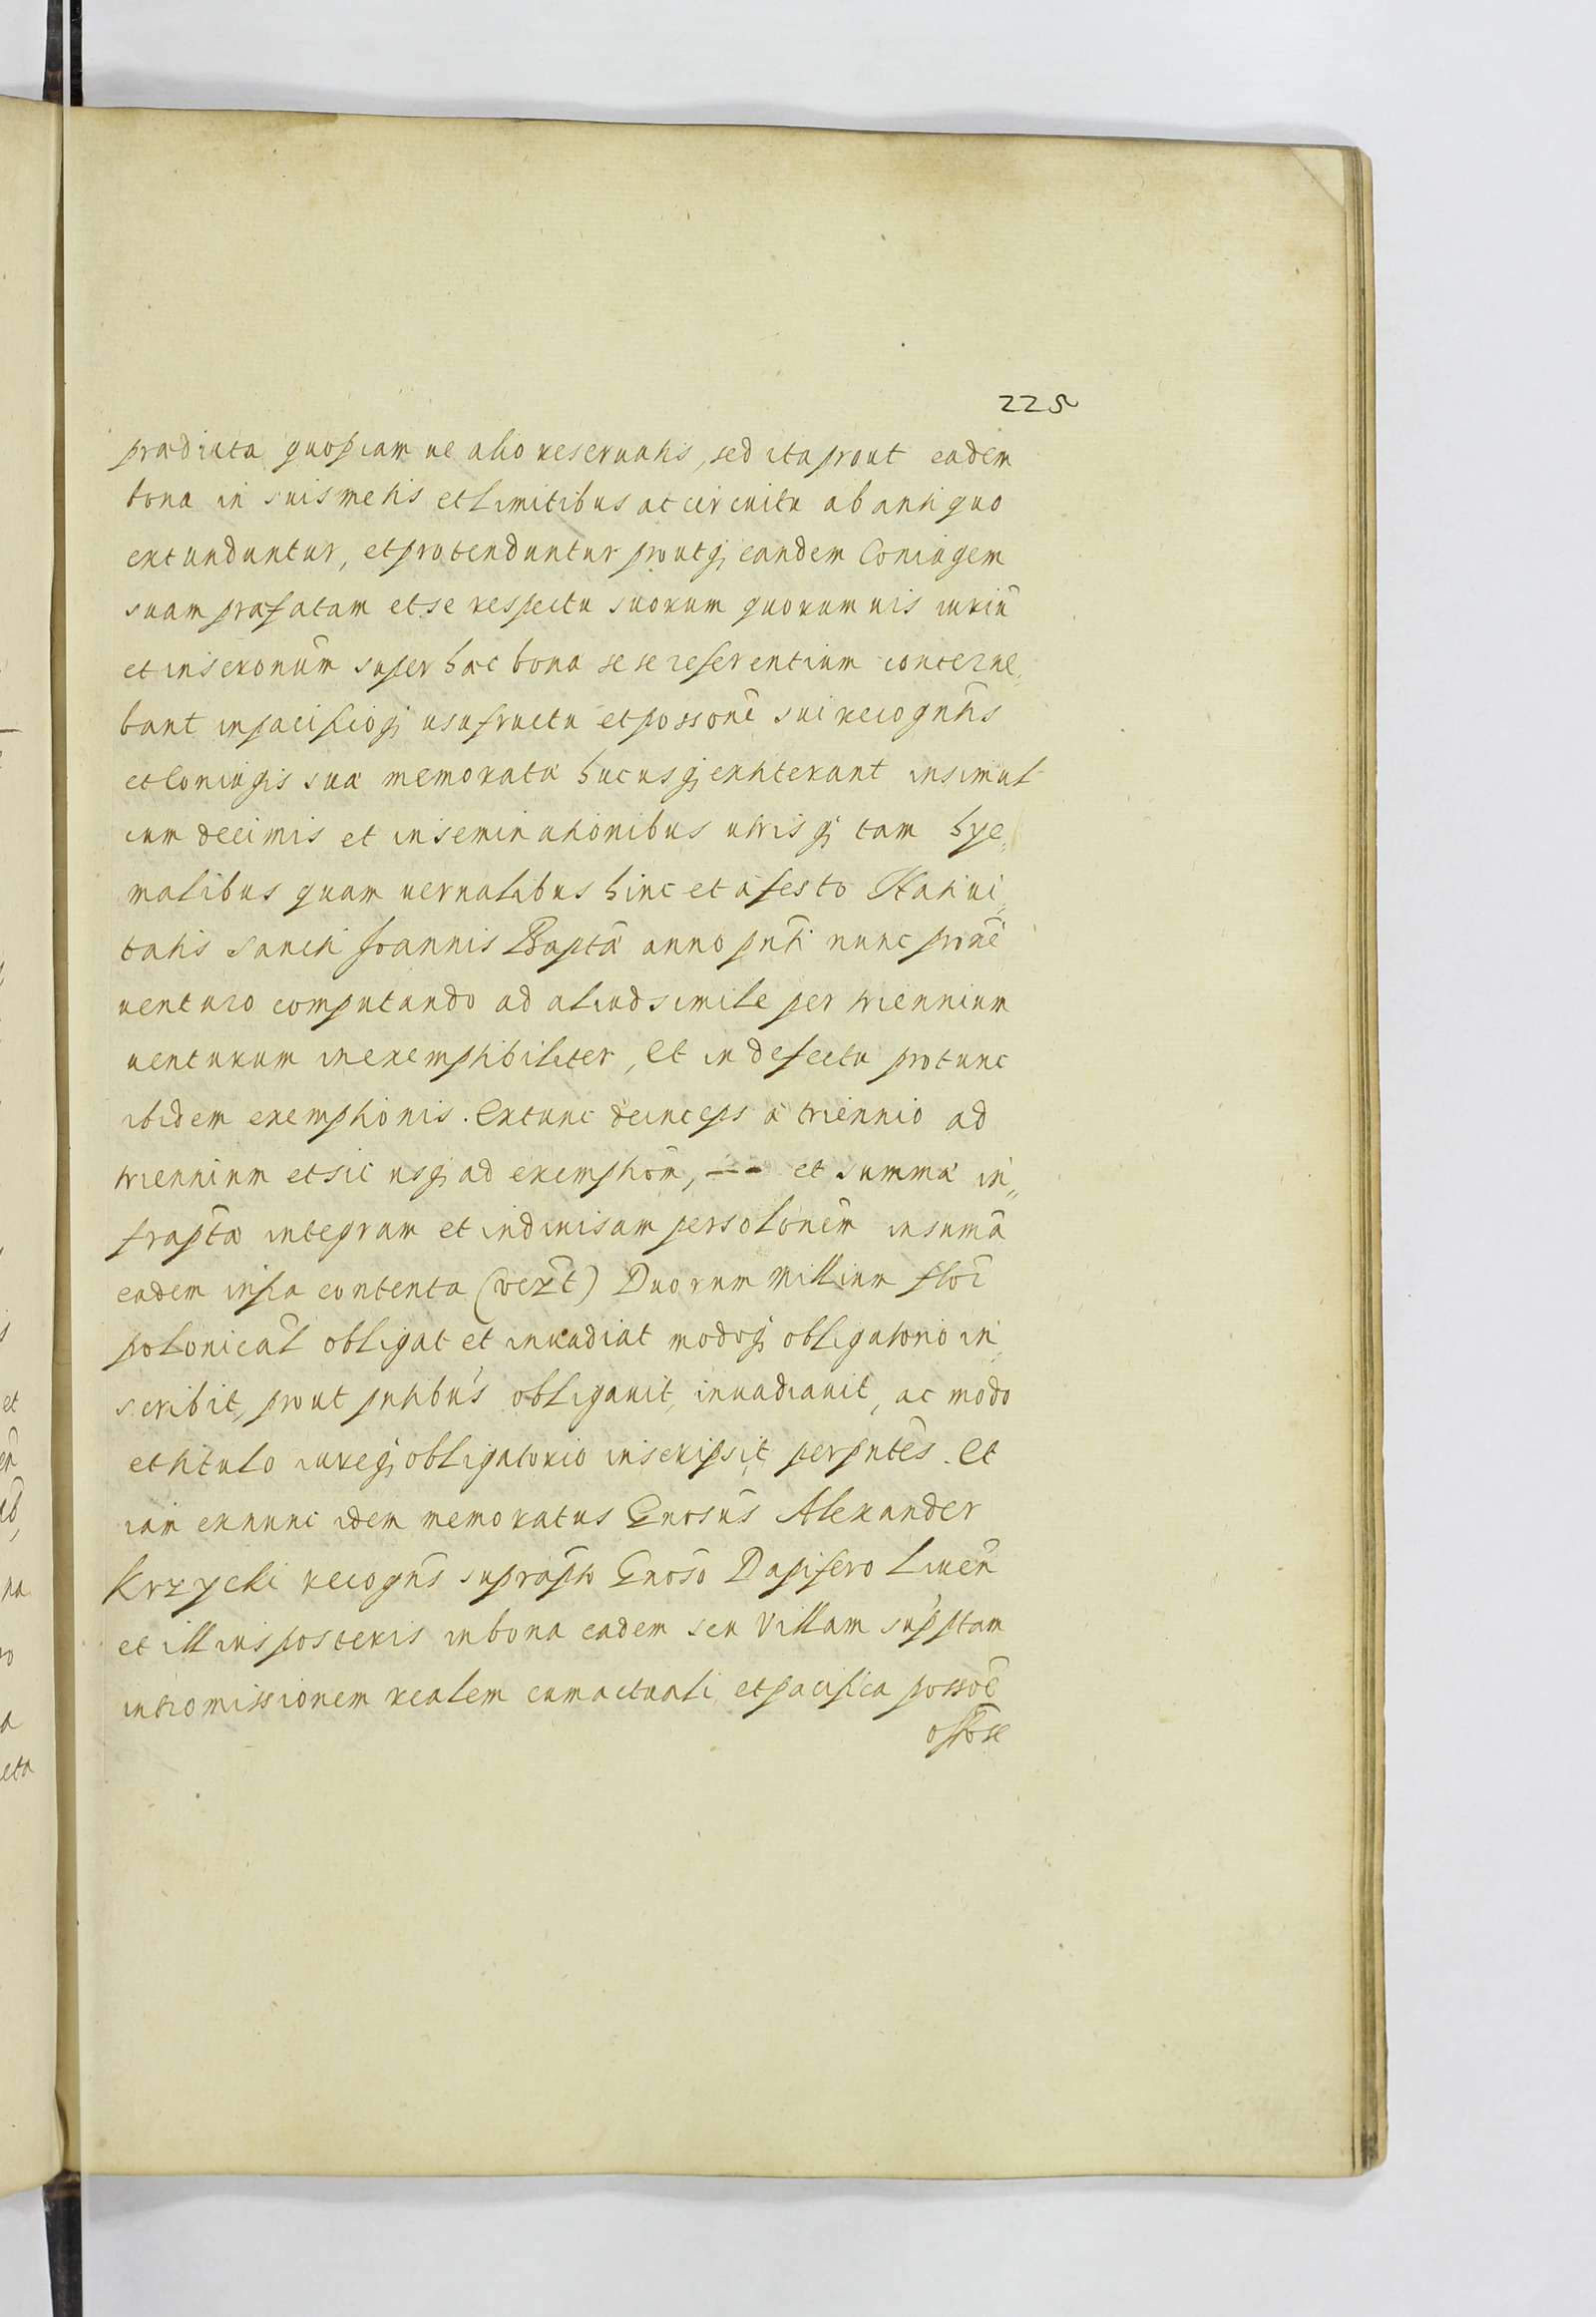 225
prædicta quopiam ve alio reservatis, sed ita prout eadem
bona in suis metis et Limitibus ac circuitu ab antiquo
extunduntur, et protenduntur proutq; eandem Coniugem
suam præfatam et se respectu suorum quorumvis iuriū
et inscronūm super hæc bona se se referentium concerne„
bant in pacificoq; usufructu et possonē sui recogntis
et Coniugis suæ memoratæ hucusq; extiterunt insimul
cum decimis et inseminationibus utrisq; tam hye„
malibus quam vernalibus hinc et à festo Nativi„
tatis Sancti Joannis Baptæ anno pnti nunc proxē
venturo computando ad aliud simile per triennium
venturum inexemptibiliter, Et in defectu protunc
ibidem exemptionis. Extunc deinceps à triennio ad
triennium et sic usq; ad exemptōn, -- et summæ in„
fraptæ integram et indivisam persolonem in sumā
eadem ipsa contenta (vezt) Duorum Millium flor
polonical obligat et invadiat modoq; obligatorio in„
scribit, prout pntibus obligavit, invadiavit, ac modo
et titulo iureq; obligatorio inscripsit per pntes. Et
iam exnunc idem memoratus Gnosus Alexander
Krzycki recogns supraptto Gnoso Dapifero Liven
et illius posteris in bona eadem seu Villam supptam
intromissionem realem cum actuali et pacifica possoē